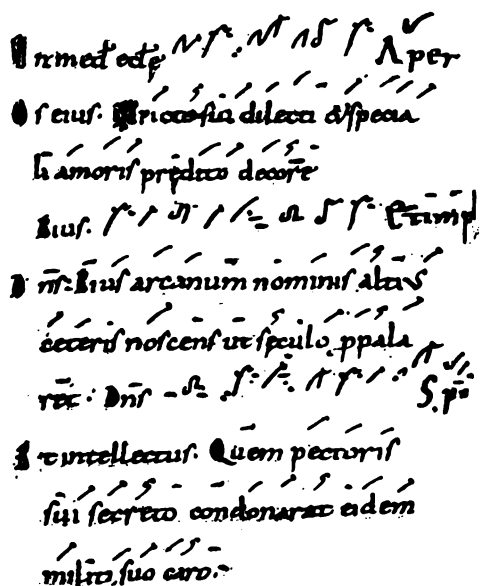 In med eccłę Aper
Os eius. dilecti & specia
li amoris predito decore
Eius. Et impl
Dn̄s. Eius arcanum nominis altius
ceteris noscens ut seculo ppala
ret: Dn̄s S. p
Et intellectus. Quem pectoris
sui secreto condonarat eidem
suo caro.